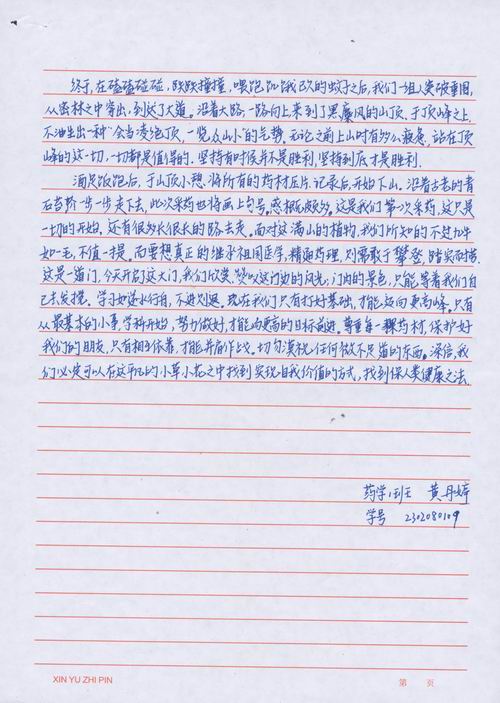 终于,在磕磕碰碰,跌跌撞撞,喂饱饥饿已久的蚊子之后,我们一组人突破重围,
从密林之中穿出,到达了大道。沿着大路,一路向上来到了黑麾风的山顶,于顶峰之上,
不油生出一种“会当凌绝顶,一览众山小”的气势。无论之前上山时有多么疲惫,站在顶
峰的这一切,一切都是值得的。坚持有时候并不是胜利,坚持到底才是胜利.
酒足饭饱后,于山顶小憩.将所有的药材压片、记录后,开始下山。沿着古老的青
石台阶一步一步走下去,此次采药也将画上句号。感慨颇多。这是我们第一次采药,这只是
一切的开始,还有很多很长很长的路去走。而对这满山的植物,我们所知的不过九牛
如一毛,不值一提。而要想真正的继承祖国医学,精通药理,则需敢于攀登,踏实耐劳.
这是一道门,今天开启这大门,我们欣赏、赞叹这门边的风光;门内的景色,只能等着我们自
己去发掘。学习如逆水行舟,不进则退.现在我们只有打好基础,才能迈向更高峰。只有
从最基本的小事,学科开始,努力做好,才能向更高的目标前进。尊重每一颗药材,保护好
我们的朋友,只有相互依靠,才能并肩作战。切勿漠视任何微不足道的东西。深信,我
们必定可以在这平凡的小草小花之中找到实现自我价值的方式,找到保人类健康之法.
药学1班 黄丹婷
学号 2302080109
XIN YU ZHI PIN
第 页